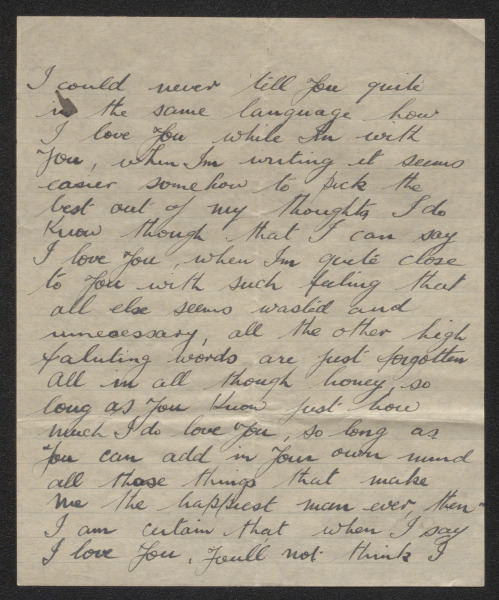 I could never tell You quite
in the same language how
I love You while Im with
You, when Im writing it seems
easier somehow to pick the
best out of my thoughts I do
Know though that I can say
I love You, when Im quite close
to You with such feeling that
all else seems wasted and
unnecessary, all the other high
faluting words are just forgotten
All in all though honey, so
long as You Know just how
much I do love You, so long as
You can add in Your own mind
all those things that make
me the happiest man ever, then
I am certain that when I say
I love You, You'll not think I